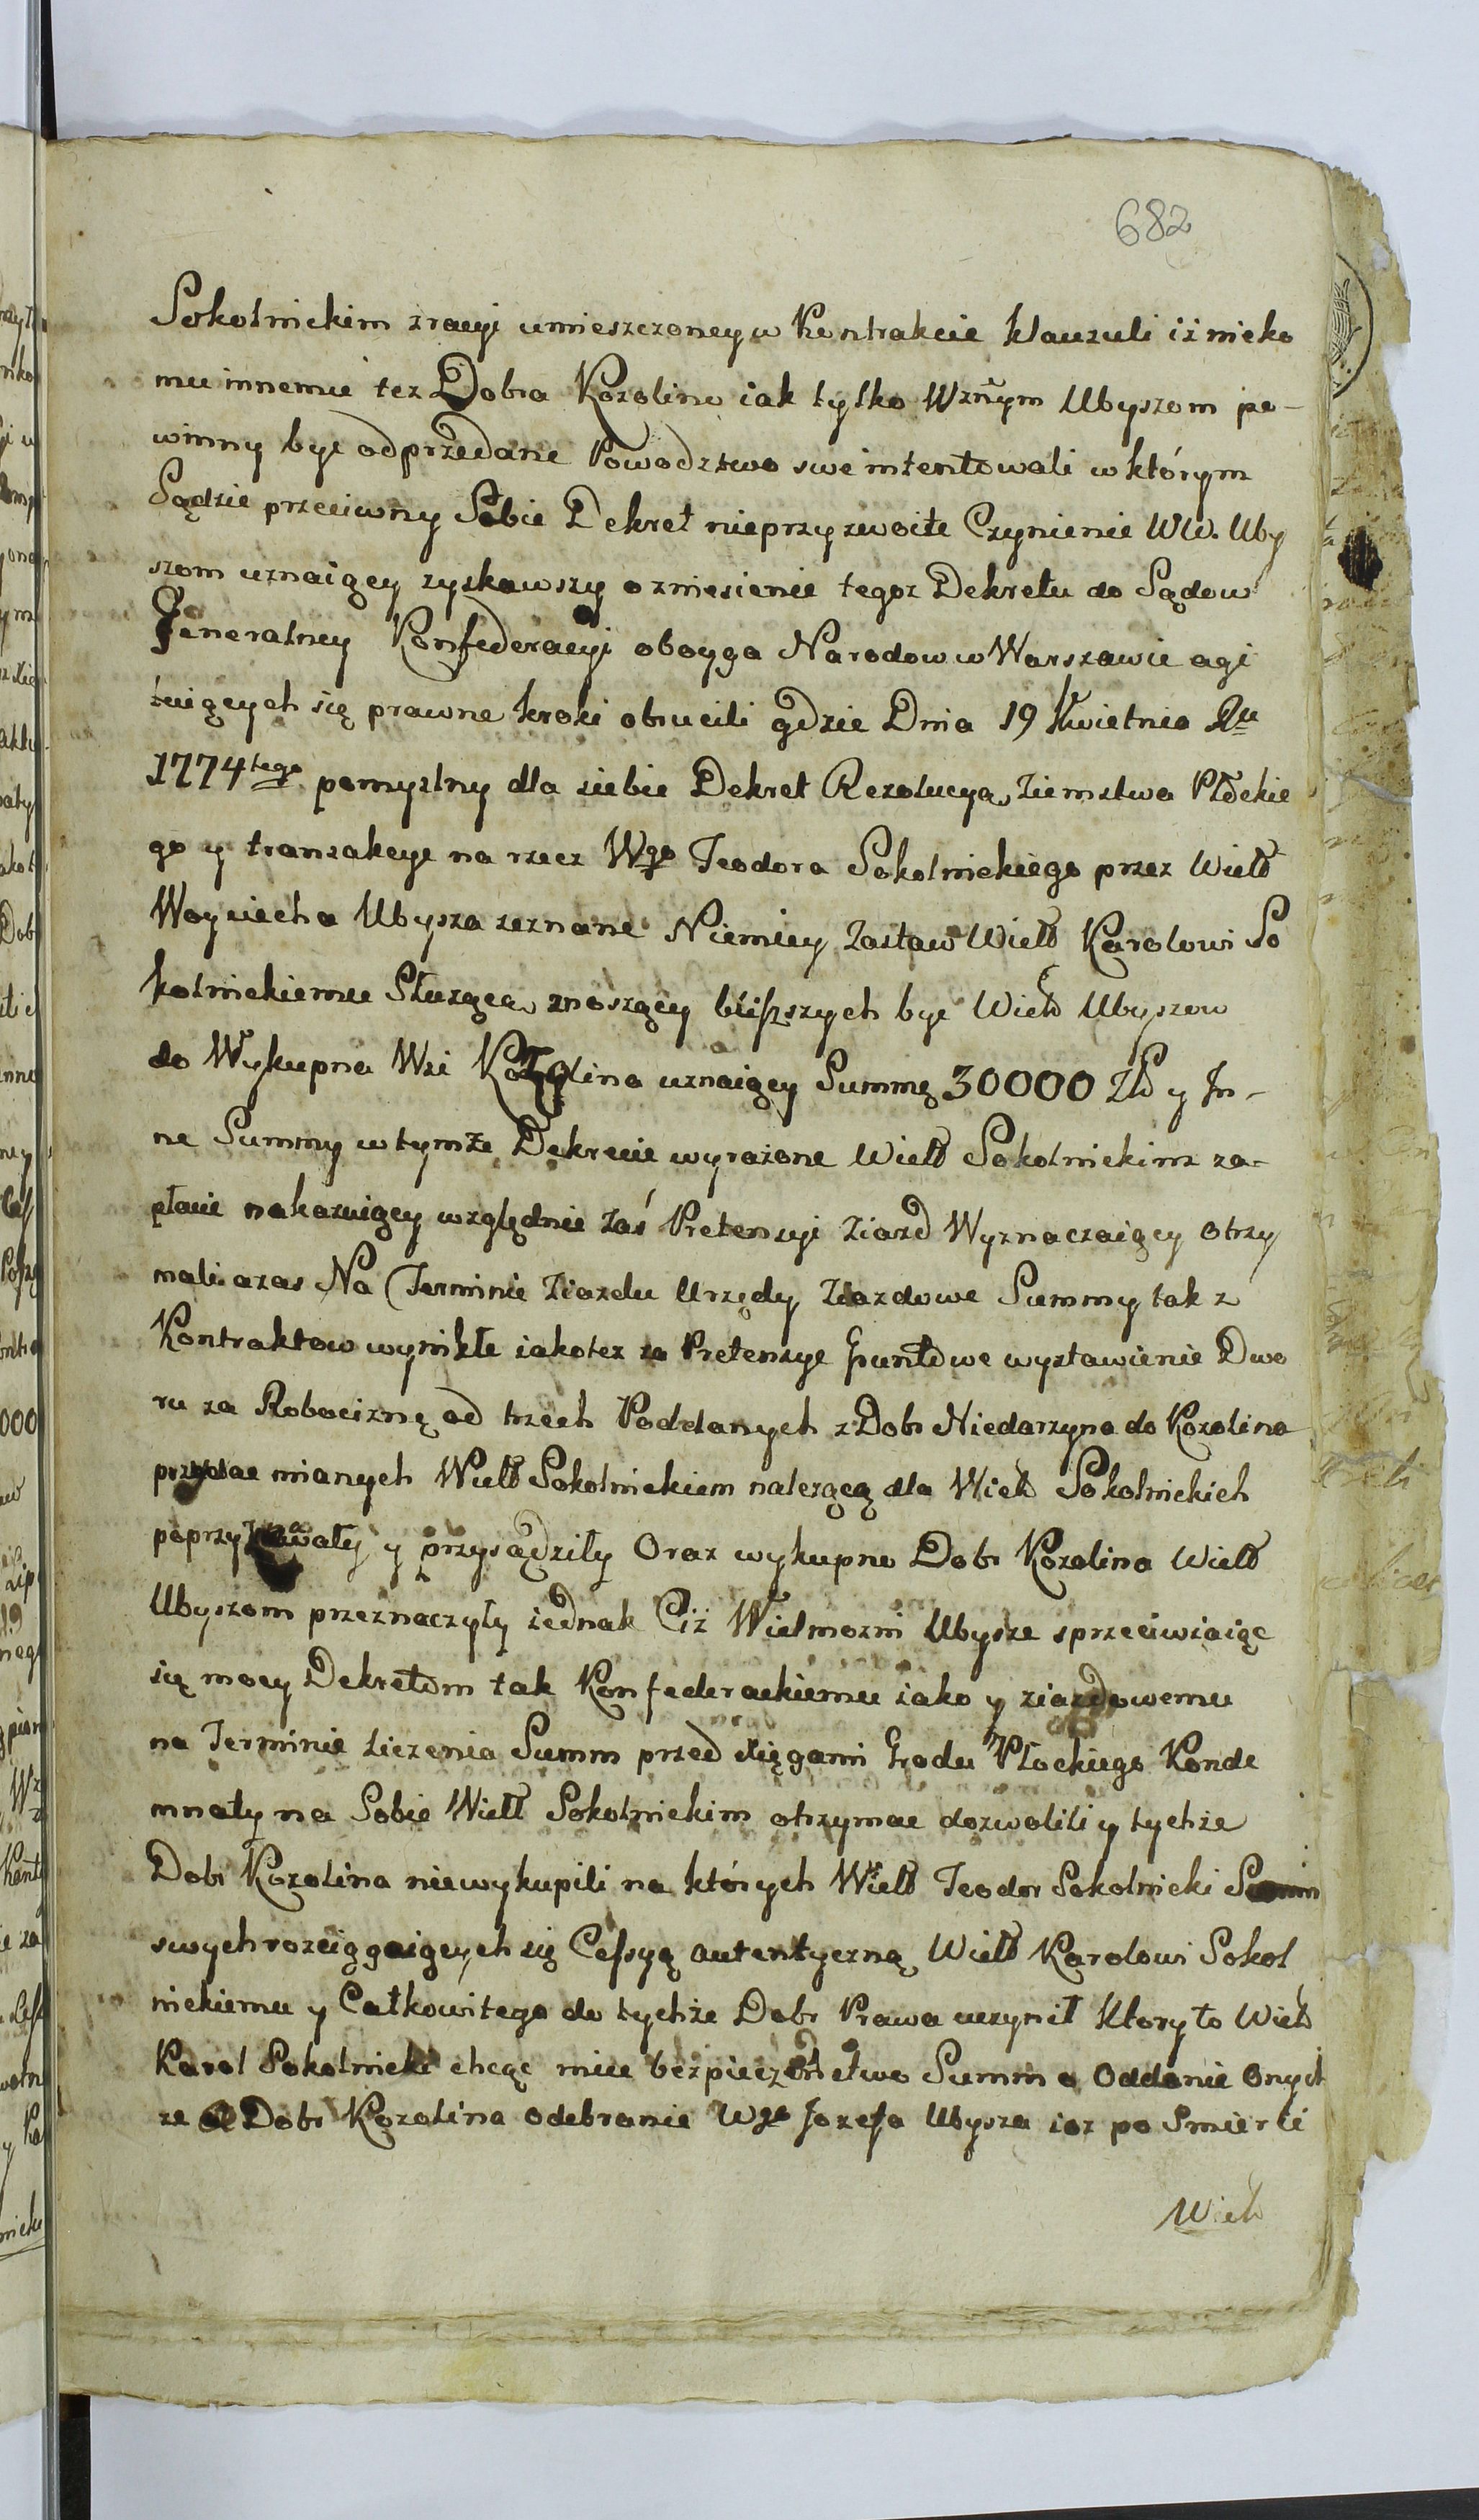 682
Sokolnickim zracyi umieszczoney w Kontrakcie klauzuli iż nieko
mu innemu tez Dobra Kozolino iak tylko Wznym Ubyszom po-
winny byc odprzedane Powodztwo swe intentowali w którym
Sądzie przeciwny Sobie Dekret nieprzyzwoite Czynienie WW. Uby
szom uznaiący zyskawszy o zniesienie tegoz Dekretu do Sądow
Jeneralney Konfederacyi oboyga Narodow w Warszawie agi
tuiących się prawne kroki obrucili gdzie Dnia 19 Kwietnia Ru
1774tego pomyslny dla siebie Dekret Rezolucyą Ziemstwa Płockie
go y tranzakcye na rzecz Wgo Teodora Sokolnickiego przez Wielb
Woyciecha Ubysza zeznane Niemiey Zastaw Wielb Karolowi So
kolnickiemu Służącą znoszący bliższych byc Wielb Ubyszow
do Wykupna Wsi Kozolina uznaiący Summę 30000 Złb y In-
ne Summy w tymże Dekrecie wyrażone Wielb Sokolnickim za-
płacic nakazuiący względnie zaś Pretensyi Ziazd Wyznaczaiący otrzy
mali azas Na Terminie Ziazdu Urzędy Ziazdowe Summy tak z
Kontraktow wynikłe iakotez za Pretensye Gruntowe wystawienie Dwo
ru za Robociznę od trzech Poddanych z Dobr Niedarzyna do Kozolina
przydac mianych Wielb Sokolnickiem nalezącą dla Wielb Sokolnickich
poprzyznawały y przysądziły Oraz wykupno Dobr Kozolina Wielb
Ubyszom przeznaczyły iednak Ciż Wielmozni Ubysze sprzeciwiaiąc
się mocy Dekretom tak Konfederackiemu iako y ziazdowemu
na Terminie Liczenia Summ przed Xięgami Grodu Płockiego Konde
mnaty na Sobie Wielb Sokolnickim otrzymac dozwolili y tychże
Dobr Kozolina niewykupili na których Wielb Teodor Sokolnicki Summ
swych rozciągaiących się Cessyą autentyczną Wielb Karolowi Sokol
nickiemu y Całkowitego do tychże Dobr Prawa uczynił Ktory to Wielb
Karol Sokolnicki chcąc miec bezpieczeństwo Summ o Oddanie Onych
ze Dobr Kozolina odebranie Wgo Jozefa Ubysza ioz po Smierci
Wielb